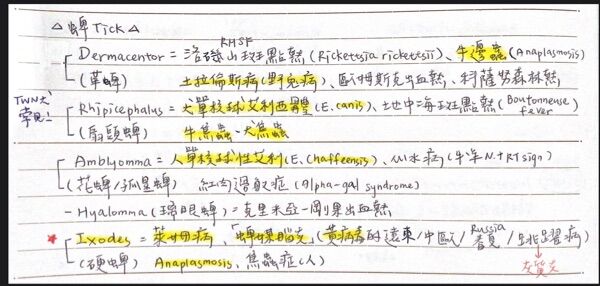 △ 蜱 Tick △
RMSF
Dermacentor = 洛磯山斑點熱 (Rickettsia rickettsii)、牛邊蟲 (Anaplasmosis)
(革蜱) 土拉倫斯病 (野兔病)、鄂姆斯克出血熱、科薩努森林熱
TWN犬常見! Rhipicephalus = 犬單核球艾利西體 (E. canis)、地中海斑點熱 (Boutonneuse fever)
(扇頭蜱) 牛焦蟲、犬焦蟲
Amblyomma = 人單核球性艾利 (E. Chaffeensis)、心水病 (牛羊 N.+RT sign)
(花蜱/孤星蜱) 紅肉過敏症 (Alpha-gal syndrome)
- Hyalomma (璃眼蜱) = 克里米亞-剛果出血熱
* Ixodes = 萊姆病、「蜱媒腦炎」(黃病毒科 遠東/中歐/Russia 春夏/跳躍病)
(硬蜱) Anaplasmosis、焦蟲症 (人)